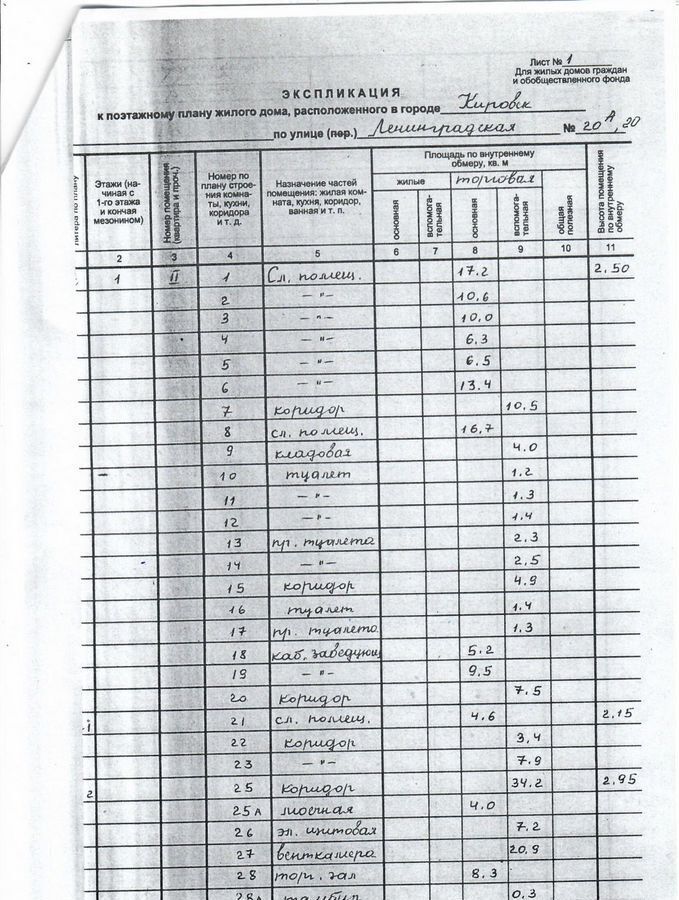 Лист № 1
Для жилых домов граждан
и обобществленного фонда
ЭКСПЛИКАЦИЯ
к поэтажному плану жилого дома, расположенного в городе Кировск
по улице (пер.) Ленинградская № 20А, 20
литера по плану
Этажи (начиная с 1-го этажа и кончая мезонином)
Номер помещения (квартира и проч.)
Номер по плану строения комнаты, кухни, коридора и т. д.
Назначение частей помещения: жилая комната, кухня, коридор, ванная и т. п.
Площадь по внутреннему обмеру, кв. м
жилые торговая
основная вспомогательная основная вспомогательная общая полезная
Высота помещения по внутреннему обмеру
2 3 4 5 6 7 8 9 10 11
1 II 1 Сл. помещ. 17.2 2,50
2 — " — 10.6
3 — " — 10.0
4 — " — 6.3
5 — " — 6.5
6 — " — 13.4
7 коридор 10.5
8 сл. помещ. 16,7
9 кладовая 4.0
10 туалет 1.2
11 — " — 1.3
12 — " — 1.4
13 пр. туалета 2.3
14 — " — 2,5
15 коридор 4.9
16 туалет 1.4
17 пр. туалета 1.3
18 каб. заведующ 5.2
19 — " — 9.5
20 коридор 7.5
21 сл. помещ. 4.6 2,15
22 коридор 3,4
23 — " — 7.9
2 25 коридор 34.2 2,95
25А моечная 4.0
26 эл. щитовая 7.2
27 венткамера 20,9
28 торг. зал 8.3
28А тамбур 0.3